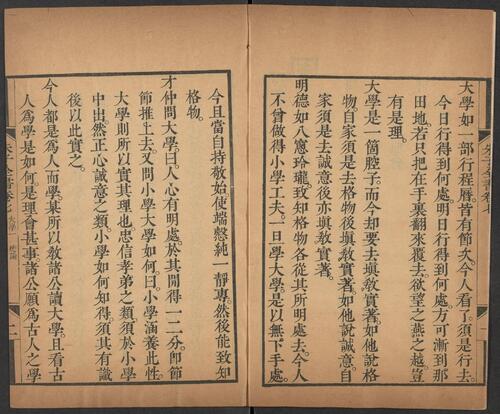 大學如一部行程曆皆有節次今人看了須是行去。
今日行得到何處明日行得到何處方可漸到那
田地若只把在手裏翻來覆去欲望之燕之越豈
有是理。
大學是一箇腔子而今卻要去塡敎實著如他說格
物自家須是去格物後塡敎實著如他說誠意自
家須是去誠意後亦塡敎實著。
明德如八窻玲瓏致知格物各從其所明處去今人
不曾做得小學工夫一旦學大學是以無下手處
今且當自持敬始使端慤純一靜專然後能致知
格物。
才仲問大學曰人心有明處於其閒得一二分卽節
節推上去又問小學大學如何曰小學涵養此性。
大學則所以實其理也忠信孝弟之類須於小學
中出然正心誠意之類小學如何知得須其有識
後以此實之。
今人都是爲人而學某所以敎諸公讀大學且看古
人爲學是如何是理會甚事諸公願爲古人之學